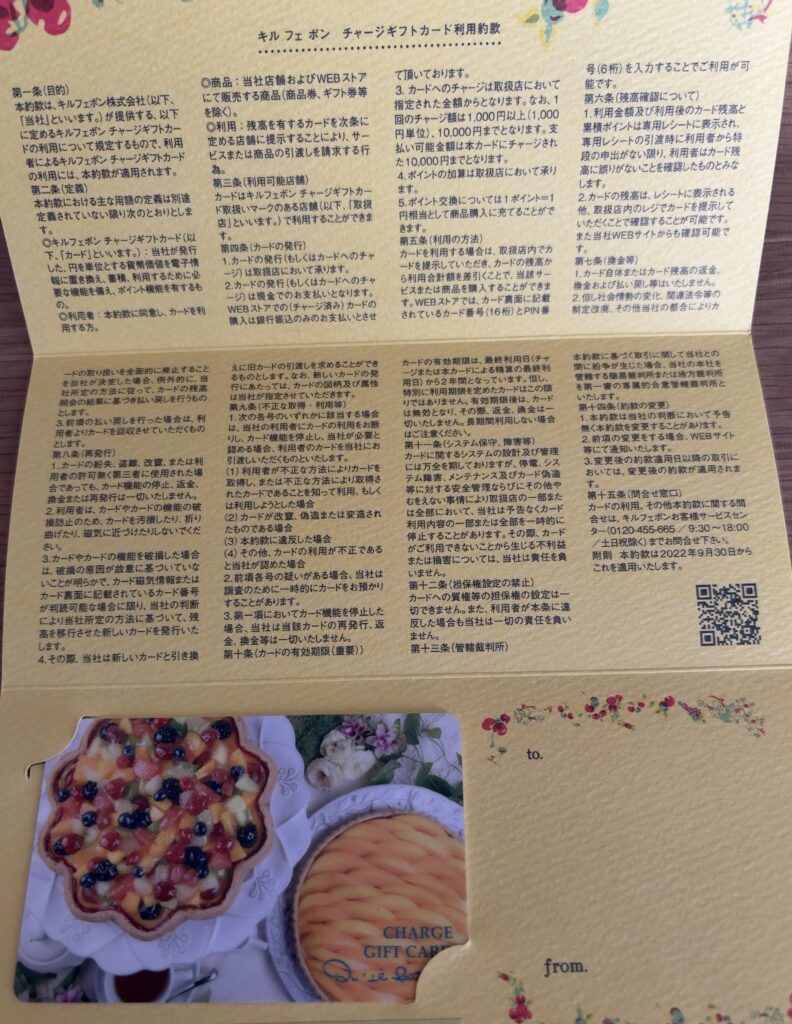 キル フェ ボン　チャージギフトカード利用約款
第一条(目的)
本約款は、キルフェボン株式会社(以下、
「当社」といいます。)が提供する、以下
に定めるキルフェボン チャージギフトカー
ドの利用について規定するもので、利用
者によるキルフェボン チャージギフトカード
の利用には、本約款が適用されます。
第二条(定義)
本約款における主な用語の定義は別途
定義されていない限り次のとおりとしま
す。
◎キルフェボン チャージギフトカード(以
下、「カード」といいます。)：当社が発行
した、円を単位とする貨幣価値を電子情
報に置き換え、蓄積、利用するために必
要な機能を備え、ポイント機能を有するも
の。
◎利用者：本約款に同意し、カードを利
用する方。
◎商品：当社店舗およびWEBストア
にて販売する商品(商品券、ギフト券等
を除く)。
◎利用：残高を有するカードを次条に
定める店舗に提示することにより、サー
ビスまたは商品の引渡しを請求する行
為。
第三条(利用可能店舗)
カードはキルフェボン チャージギフトカー
ド取扱いマークのある店舗(以下、「取扱
店」といいます。)で利用することができま
す。
第四条(カードの発行)
1.カードの発行(もしくはカードへのチャー
ジ)は取扱店において承ります。
2.カードの発行(もしくはカードへのチャー
ジ)は現金でのお支払いとなります。
WEBストアでの(チャージ済み)カードの
購入は銀行振込のみのお支払いとさせ
て頂いております。
3. カードへのチャージは取扱店において
指定された金額からとなります。なお、1
回のチャージ額は1,000円以上(1,000
円単位)、10,000円までとなります。支
払い可能金額は本カードにチャージされ
た10,000円までとなります。
4.ポイントの加算は取扱店において承り
ます。
5.ポイント交換については1ポイント＝1
円相当として商品購入に充てることがで
きます。
第五条(利用の方法)
カードを利用する場合は、取扱店内でカー
ドを提示していただき、カードの残高か
ら利用合計額を差引くことで、当該サー
ビスまたは商品を購入することができま
す。WEBストアでは、カード裏面に記載
されているカード番号(16桁)とPIN番
号(6桁)を入力することでご利用が可
能です。
第六条(残高確認について)
1.利用金額及び利用後のカード残高と
累積ポイントは専用レシートに表示され、
専用レシートの引渡時に利用者から特
段の申出がない限り、利用者はカード残
高に誤りがないことを確認したものとみな
します。
2.カードの残高は、レシートに表示される
他、取扱店内のレジでカードを提示して
いただくことで確認することが可能です。
また当社WEBサイトからも確認可能で
す。
第七条(換金等)
1.カード自体またはカード残高の返金、
換金および払い戻し等はいたしません。
2.但し社会情勢の変化、関連法令等の
制定改廃、その他当社の都合によりカ
ードの取り扱いを全面的に廃止すること
を当社が決定した場合、例外的に、当
社所定の方法に従って、カードの残高
照会の結果に基づき払い戻しを行うもの
とします。
3.前項の払い戻しを行った場合は、利
用者よりカードを回収させていただくもの
とします。
第八条(再発行)
1.カードの紛失、盗難、改竄、または利
用者の許可無く第三者に使用された場
合であっても、カード機能の停止、返金、
換金または再発行は一切いたしません。
2.利用者は、カードやカードの機能の破
損防止のため、カードを汚損したり、折り
曲げたり、磁気に近づけたりしないでくだ
さい。
3.カードやカードの機能を破損した場合
は、破損の原因が故意に基づいていな
いことが明らかで、カード磁気情報または
カード裏面に記載されているカード番号
が判読可能な場合に限り、当社の判断
により当社所定の方法に基づいて、残
高を移行させた新しいカードを発行いた
します。
4.その際、当社は新しいカードと引き換
えに旧カードの引渡しを求めることができ
るものとします。なお、新しいカードの発
行にあたっては、カードの図柄及び属性
は当社が指定させていただきます。
第九条(不正な取得・利用等)
1.次の各号のいずれかに該当する場合
は、当社の利用者にカードの利用をお断
りし、カード機能を停止し、当社が必要と
認める場合、利用者のカードを当社にお
引渡しいただくものといたします。
(1)利用者が不正な方法によりカードを
取得し、または不正な方法により取得さ
れたカードであることを知って利用、もしく
は利用しようとした場合
(2)カードが改竄、偽造または変造され
たものである場合
(3)本約款に違反した場合
(4)その他、カードの利用が不正である
と当社が認めた場合
2.前項各号の疑いがある場合、当社は
調査のために一時的にカードをお預かり
することがあります。
3.第一項においてカード機能を停止した
場合、当社は当該カードの再発行、返
金、換金等は一切いたしません。
第十条(カードの有効期限(重要))
カードの有効期限は、最終利用日(チャ
ージまたは本カードによる精算の最終利
用日)から2年間となっています。但し、
特別に利用期限を定めたカードはこの限
りではありません。有効期限後は、カード
は無効となり、その際、返金、換金は一
切いたしません。長期間利用しない場合
はご注意ください。
第十一条(システム保守、障害等)
カードに関するシステムの設計及び管理
には万全を期しておりますが、停電、シス
テム障害、メンテナンス及びカード偽造
等に対する安全管理ならびにその他や
むをえない事情により取扱店の一部また
は全部において、当社は予告なくカード
利用内容の一部または全部を一時的に
停止することがあります。その際、カード
がご利用できないことから生じる不利益
または損害については、当社は責任を負
いません。
第十二条(担保権設定の禁止)
カードへの質権等の担保権の設定は一
切できません。また、利用者が本条に違
反した場合も当社は一切の責任を負い
ません。
第十三条(管轄裁判所)
本約款に基づく取引に関して当社との
間に紛争が生じた場合、当社の本社を
管轄する簡易裁判所または地方裁判所
を第一審の専属的合意管轄裁判所と
いたします。
第十四条(約款の変更)
1.本約款は当社の判断において予告
無く本約款を変更することがあります。
2.前項の変更をする場合、WEBサイト
等にて通知いたします。
3.変更後の約款適用日以降の取引に
おいては、変更後の約款が適用されま
す。
第十五条(問合せ窓口)
カードの利用、その他本約款に関する問
合せは、キルフェボンお客様サービスセン
ター(0120-455-665 ／ 9:30〜18:00
／土日祝除く)までお問合せ下さい。
附則　本約款は2022年9月30日から
これを適用いたします。
to.
from.
CHARGE
GIFT CAR